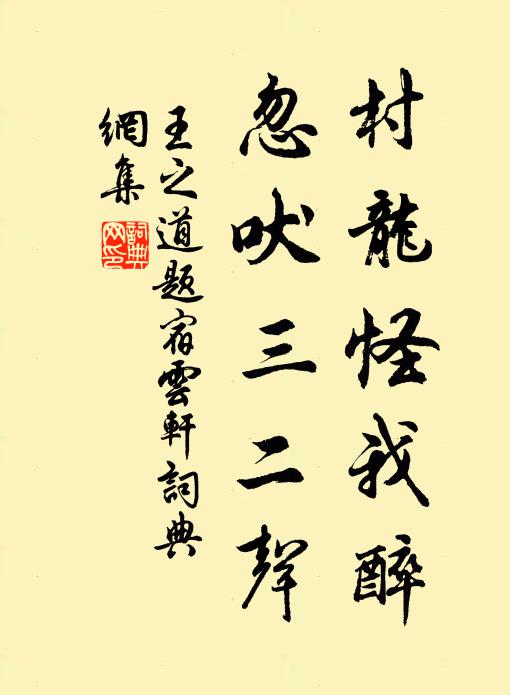 村龍怪我醉
忽吠三二聲
王之道題宿雲軒詞典
網集
詞典网印